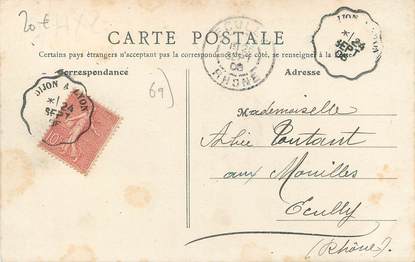 20€
CARTE POSTALE
Certains pays étrangers n'acceptant pas la correspondance de ce côté, se renseigner à la Poste
Correspondance
Adresse
RHONE
DIJON A LYON
24
SEPT
DIJON
24
SEPT
69)
Mademoiselle
Toutant
aux Mouilles
Ecully
(Rhône).